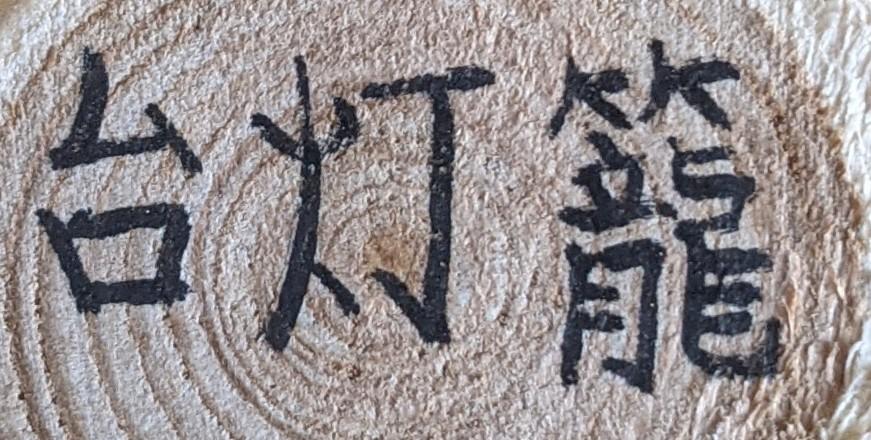 台灯籠